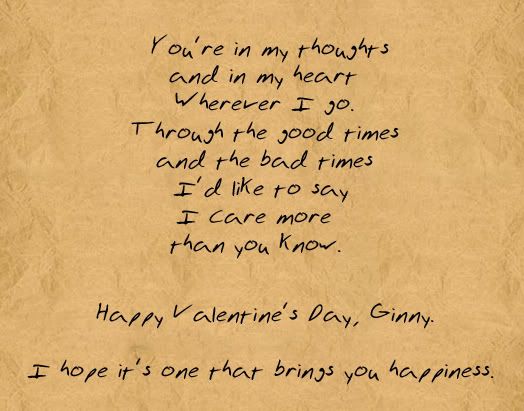 You're in my thoughts
and in my heart
Wherever I go.
Through the good times
and the bad times
I'd like to say
I care more
than you know.
Happy Valentine's Day, Ginny.
I hope it's one that brings you happiness.